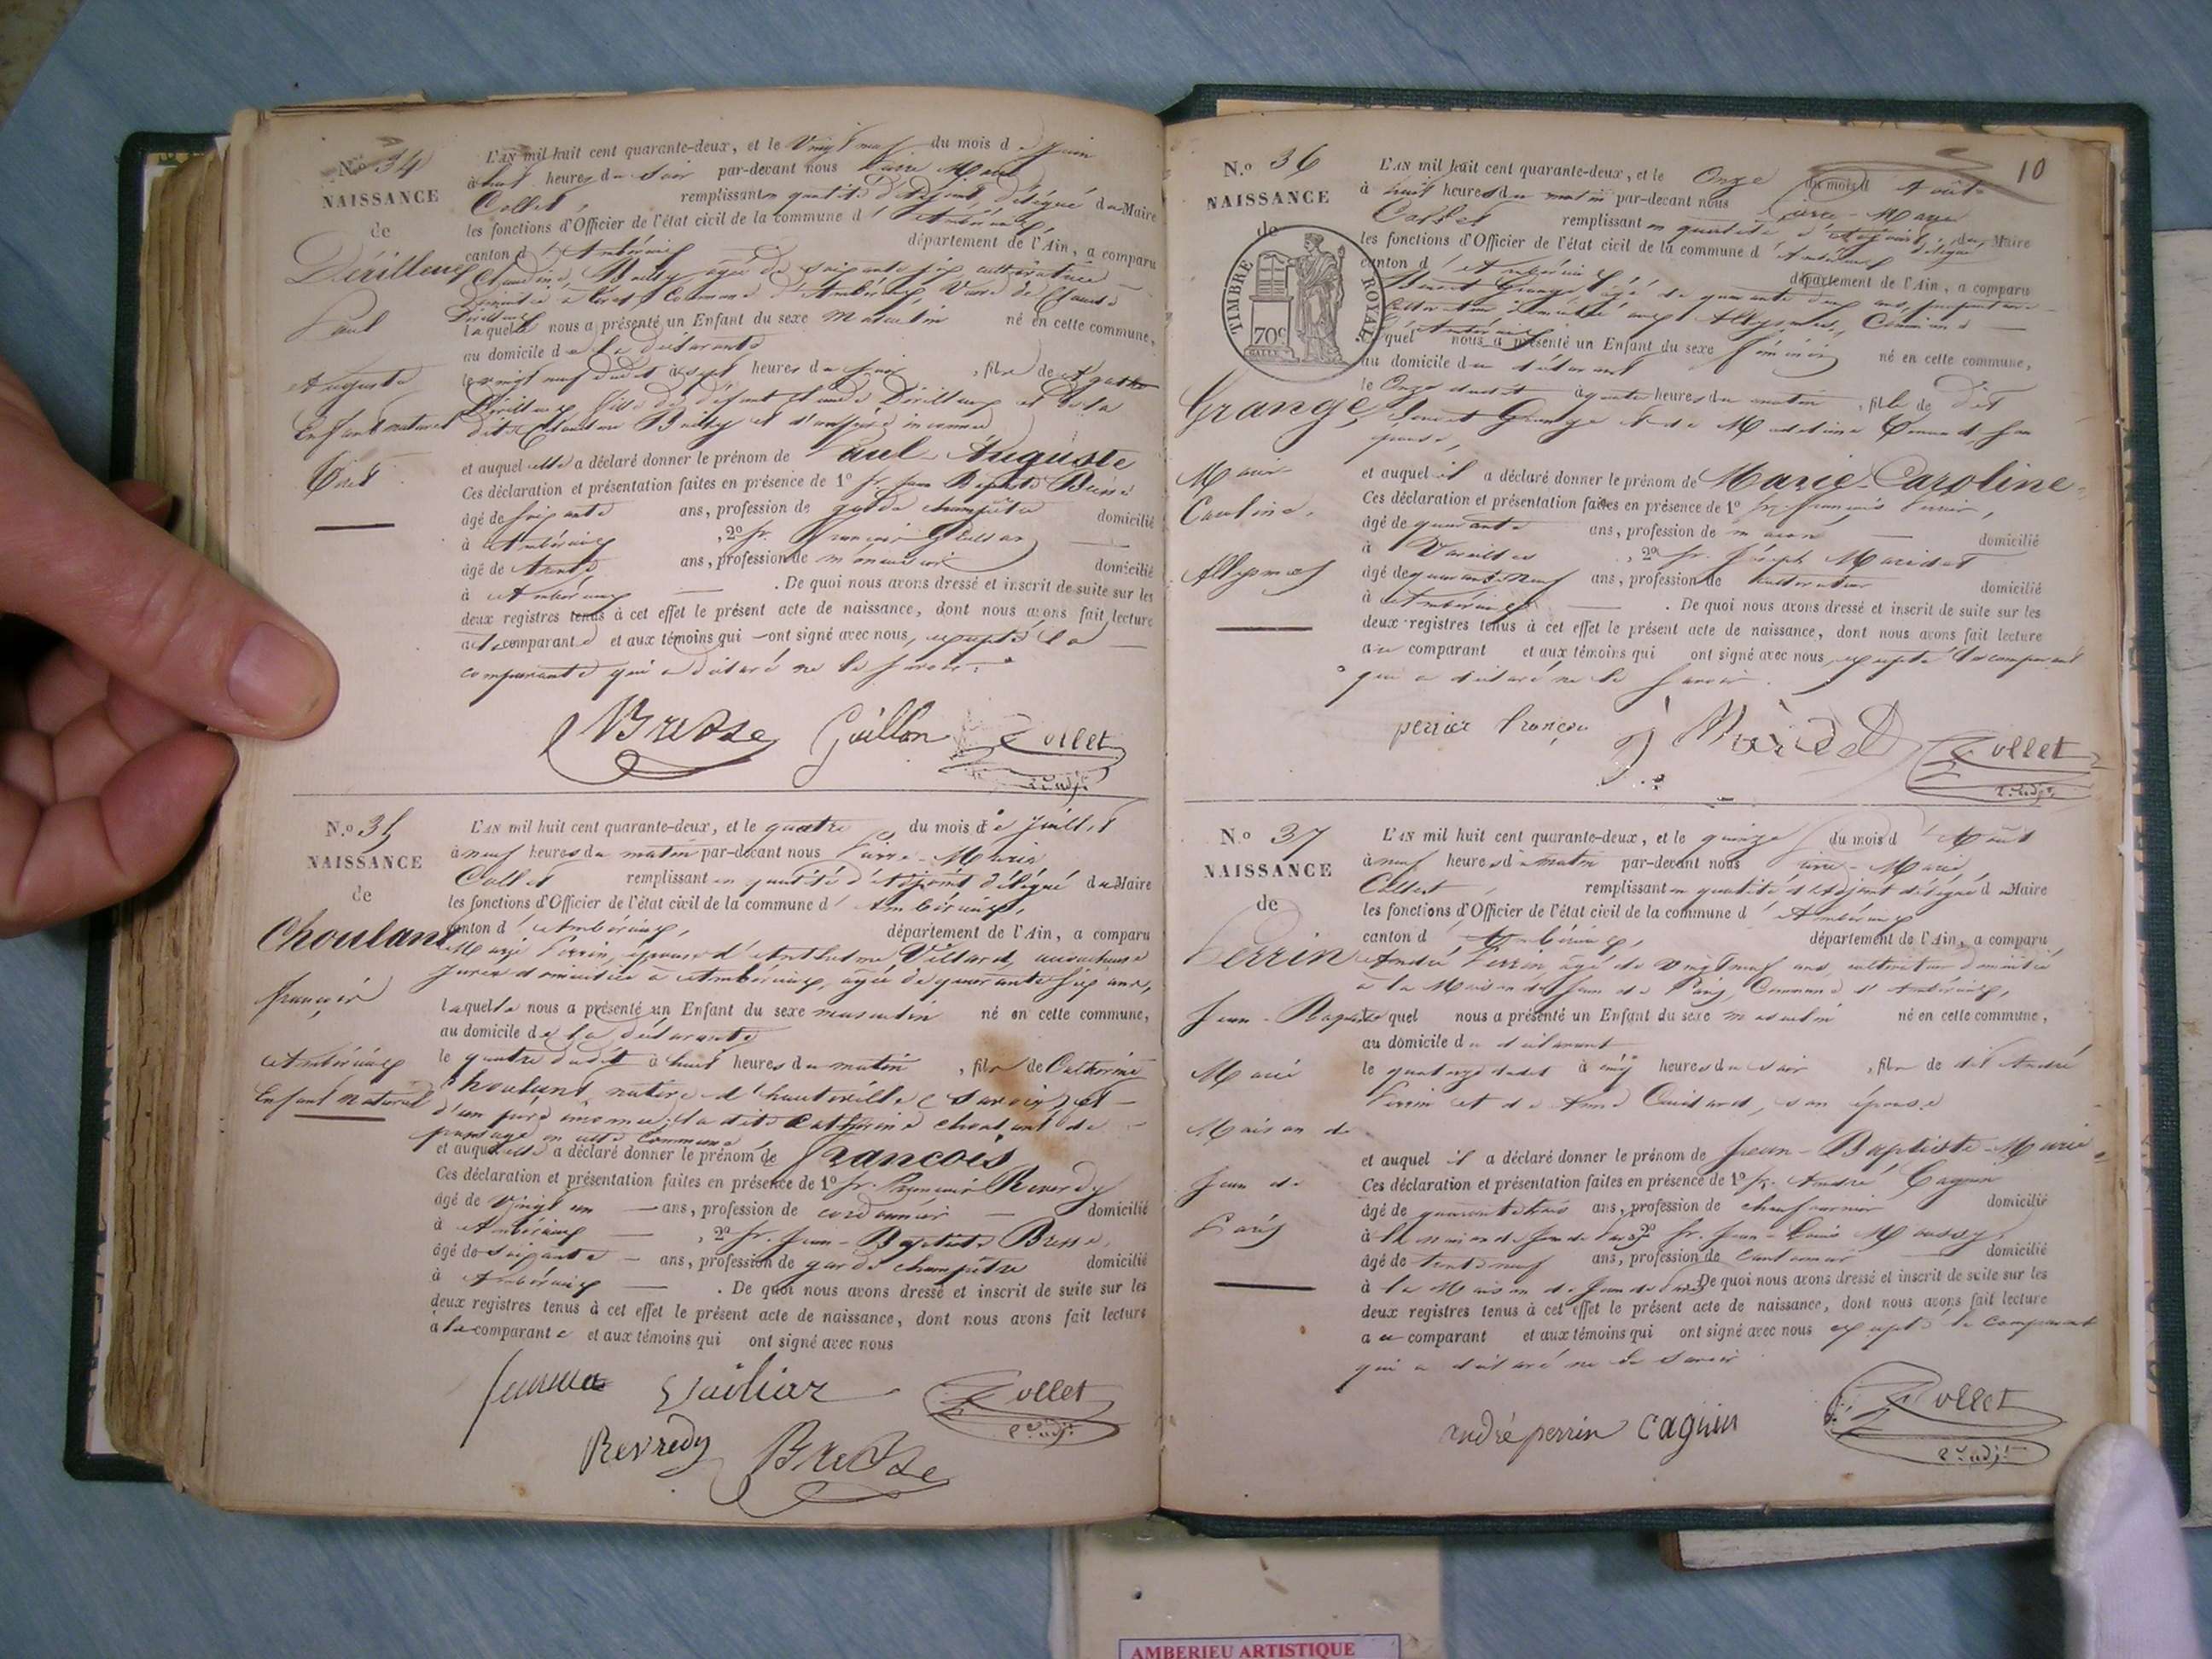 N.º 34
NAISSANCE
de
Dérilleux
Paul
Auguste
Enfant naturel
L'AN mil huit cent quarante-deux, et le Vingt neuf du mois de Juin
à huit heures du Soir par-devant nous Pierre Marie
Collet, remplissant en qualité d'Adjoint délégué du Maire
les fonctions d'Officier de l'état civil de la commune d'Ambérieux
canton d'Ambérieux département de l'Ain, a comparu
Claudine Bailly agée de soixante six cultivatrice
Commune d'Ambérieux, Veuve de Claude
Dérilleux
laquelle nous a présenté un Enfant du sexe masculin né en cette commune,
au domicile de la déclarante
le vingt neuf dudit à sept heures du soir, fils de Agathe
Dérilleux fille de défunt Claude Dérilleux et de la
dite Claudine Bailly et d'un père inconnu
et auquel elle a déclaré donner le prénom de Paul Auguste
Ces déclaration et présentation faites en présence de 1º Sr. Jean Baptiste Bresse
âgé de soixante ans, profession de garde champêtre domicilié
à Ambérieux, 2º Sr. François Guillon
âgé de trente ans, profession de menuisier domicilié
à Ambérieux. De quoi nous avons dressé et inscrit de suite sur les
deux registres tenus à cet effet le présent acte de naissance, dont nous avons fait lecture
à la comparante et aux témoins qui ont signé avec nous, excepté la
comparante qui a déclaré ne le savoir.
Bresse Guillon Collet
adjt
N.º 35
NAISSANCE
de
Choulant
françois
Ambérieux
Enfant naturel
L'AN mil huit cent quarante-deux, et le quatre du mois de Juillet
à neuf heures du matin par-devant nous Pierre-Marie
Collet remplissant en qualité d'Adjoint délégué du Maire
les fonctions d'Officier de l'état civil de la commune d'Ambérieux,
canton d'Ambérieux, département de l'Ain, a comparu
Marie Perrin, épouse d'Anthelme Villard, accoucheuse
jurée domiciliée à Ambérieux, agée de quarante six ans,
laquelle nous a présenté un Enfant du sexe masculin né en cette commune,
au domicile de la déclarante
le quatre dudit à huit heures du matin, fils de Catherine
Choulant, native d'hauteville (Savoie) et
d'un père inconnu; la dite Catherine Choulant de
passage en cette Commune
et auquel elle a déclaré donner le prénom de françois
Ces déclaration et présentation faites en présence de 1º Sr. Reverdy
âgé de Vingt un ans, profession de cordonnier domicilié
à Ambérieux, 2º Sr. Jean-Baptiste Bresse,
âgé de soixante ans, profession de garde champêtre domicilié
à Ambérieux. De quoi nous avons dressé et inscrit de suite sur les
deux registres tenus à cet effet le présent acte de naissance, dont nous avons fait lecture
à la comparante et aux témoins qui ont signé avec nous
Collet
adjt
Revredy Bresse
10
N.º 36
NAISSANCE
de
TIMBRE ROYAL
70c
Grange
Marie
Caroline,
Allymes
L'AN mil huit cent quarante-deux, et le Onze du mois d'Août
à huit heures du matin par-devant nous Pierre-Marie
Collet remplissant en qualité d'Adjoint délégué du Maire
les fonctions d'Officier de l'état civil de la commune d'Ambérieux
canton d'Ambérieux département de l'Ain, a comparu
Benoit Grange agé de quarante ans,
cultivateur domicilié aux Allymes, Commune
d'Ambérieux
lequel nous a présenté un Enfant du sexe féminin né en cette commune,
au domicile du déclarant
le Onze dudit à quatre heures du matin, fille de dit
Benoit Grange et de Madeleine son
épouse,
et auquel il a déclaré donner le prénom de Marie-Caroline
Ces déclaration et présentation faites en présence de 1º Sr. françois Perrier,
âgé de quarante ans, profession de maçon domicilié
à Vareilles, 2º Sr. Joseph Maridet
âgé de quarante neuf ans, profession de cultivateur domicilié
à Ambérieux. De quoi nous avons dressé et inscrit de suite sur les
deux registres tenus à cet effet le présent acte de naissance, dont nous avons fait lecture
au comparant et aux témoins qui ont signé avec nous excepté le comparant
qui a déclaré ne le savoir.
perrier françois J Maridet Collet
adjt
N.º 37
NAISSANCE
de
Perrin
Jean-Baptiste
Marie
Maison de
Jean de
Paris
L'AN mil huit cent quarante-deux, et le quinze du mois d'Août
à neuf heures du matin par-devant nous Pierre-Marie
Collet remplissant en qualité d'Adjoint délégué du Maire
les fonctions d'Officier de l'état civil de la commune d'Ambérieux
canton d'Ambérieux, département de l'Ain, a comparu
André Perrin, agé de vingt neuf ans, cultivateur domicilié
à la Maison de Jean de Paris, Commune d'Ambérieux,
lequel nous a présenté un Enfant du sexe masculin né en cette commune,
au domicile du déclarant
le quatorze dudit à cinq heures du soir, fils de dit André
Perrin et de Anne, son épouse
et auquel il a déclaré donner le prénom de Jean-Baptiste-Marie
Ces déclaration et présentation faites en présence de 1º Sr. André Caguin
âgé de quarante trois ans, profession de chaufournier domicilié
à la maison de Jean de Paris 2º Sr. Jean-Louis Moussy
âgé de trente neuf ans, profession de cantonnier domicilié
à la Maison de Jean de Paris De quoi nous avons dressé et inscrit de suite sur les
deux registres tenus à cet effet le présent acte de naissance, dont nous avons fait lecture
au comparant et aux témoins qui ont signé avec nous excepté le comparant
qui a déclaré ne le savoir
André perrin Caguin Collet
adjt
AMBERIEU ARTISTIQUE